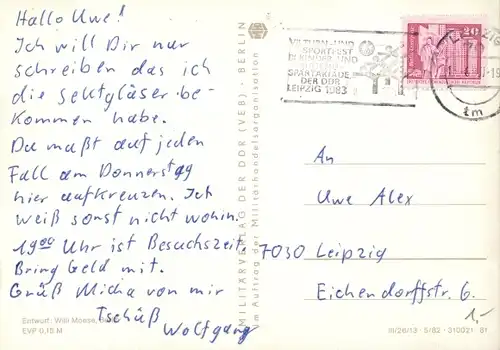 Hallo Uwe!
Ich will Dir nur
schreiben das ich
die Sektgläser be-
kommen habe.
Du maßt auf jeden
Fall am Donnerstag
hier aufkreuzen. Ich
weiß sonst nicht wohin.
19⁰⁰ Uhr ist Besuchszeit.
Bring Geld mit.
Grüß Micha von mir
Tschüß
Wolfgang
Entwurf: Willi Moese, Berlin
EVP 0,15 M
MILITÄRVERLAG DER DDR (VEB) · BERLIN
im Auftrag der Militärhandelsorganisation
VII. TURN- UND
SPORTFEST
KINDER- UND
SPARTAKIADE
DER DDR
LEIPZIG 1983
LEIPZIG
tm
20
An
Uwe Alex
7030 Leipzig
Eichendorffstr. 6.
1,-
III/26/13 · 5/82 · 310021 81